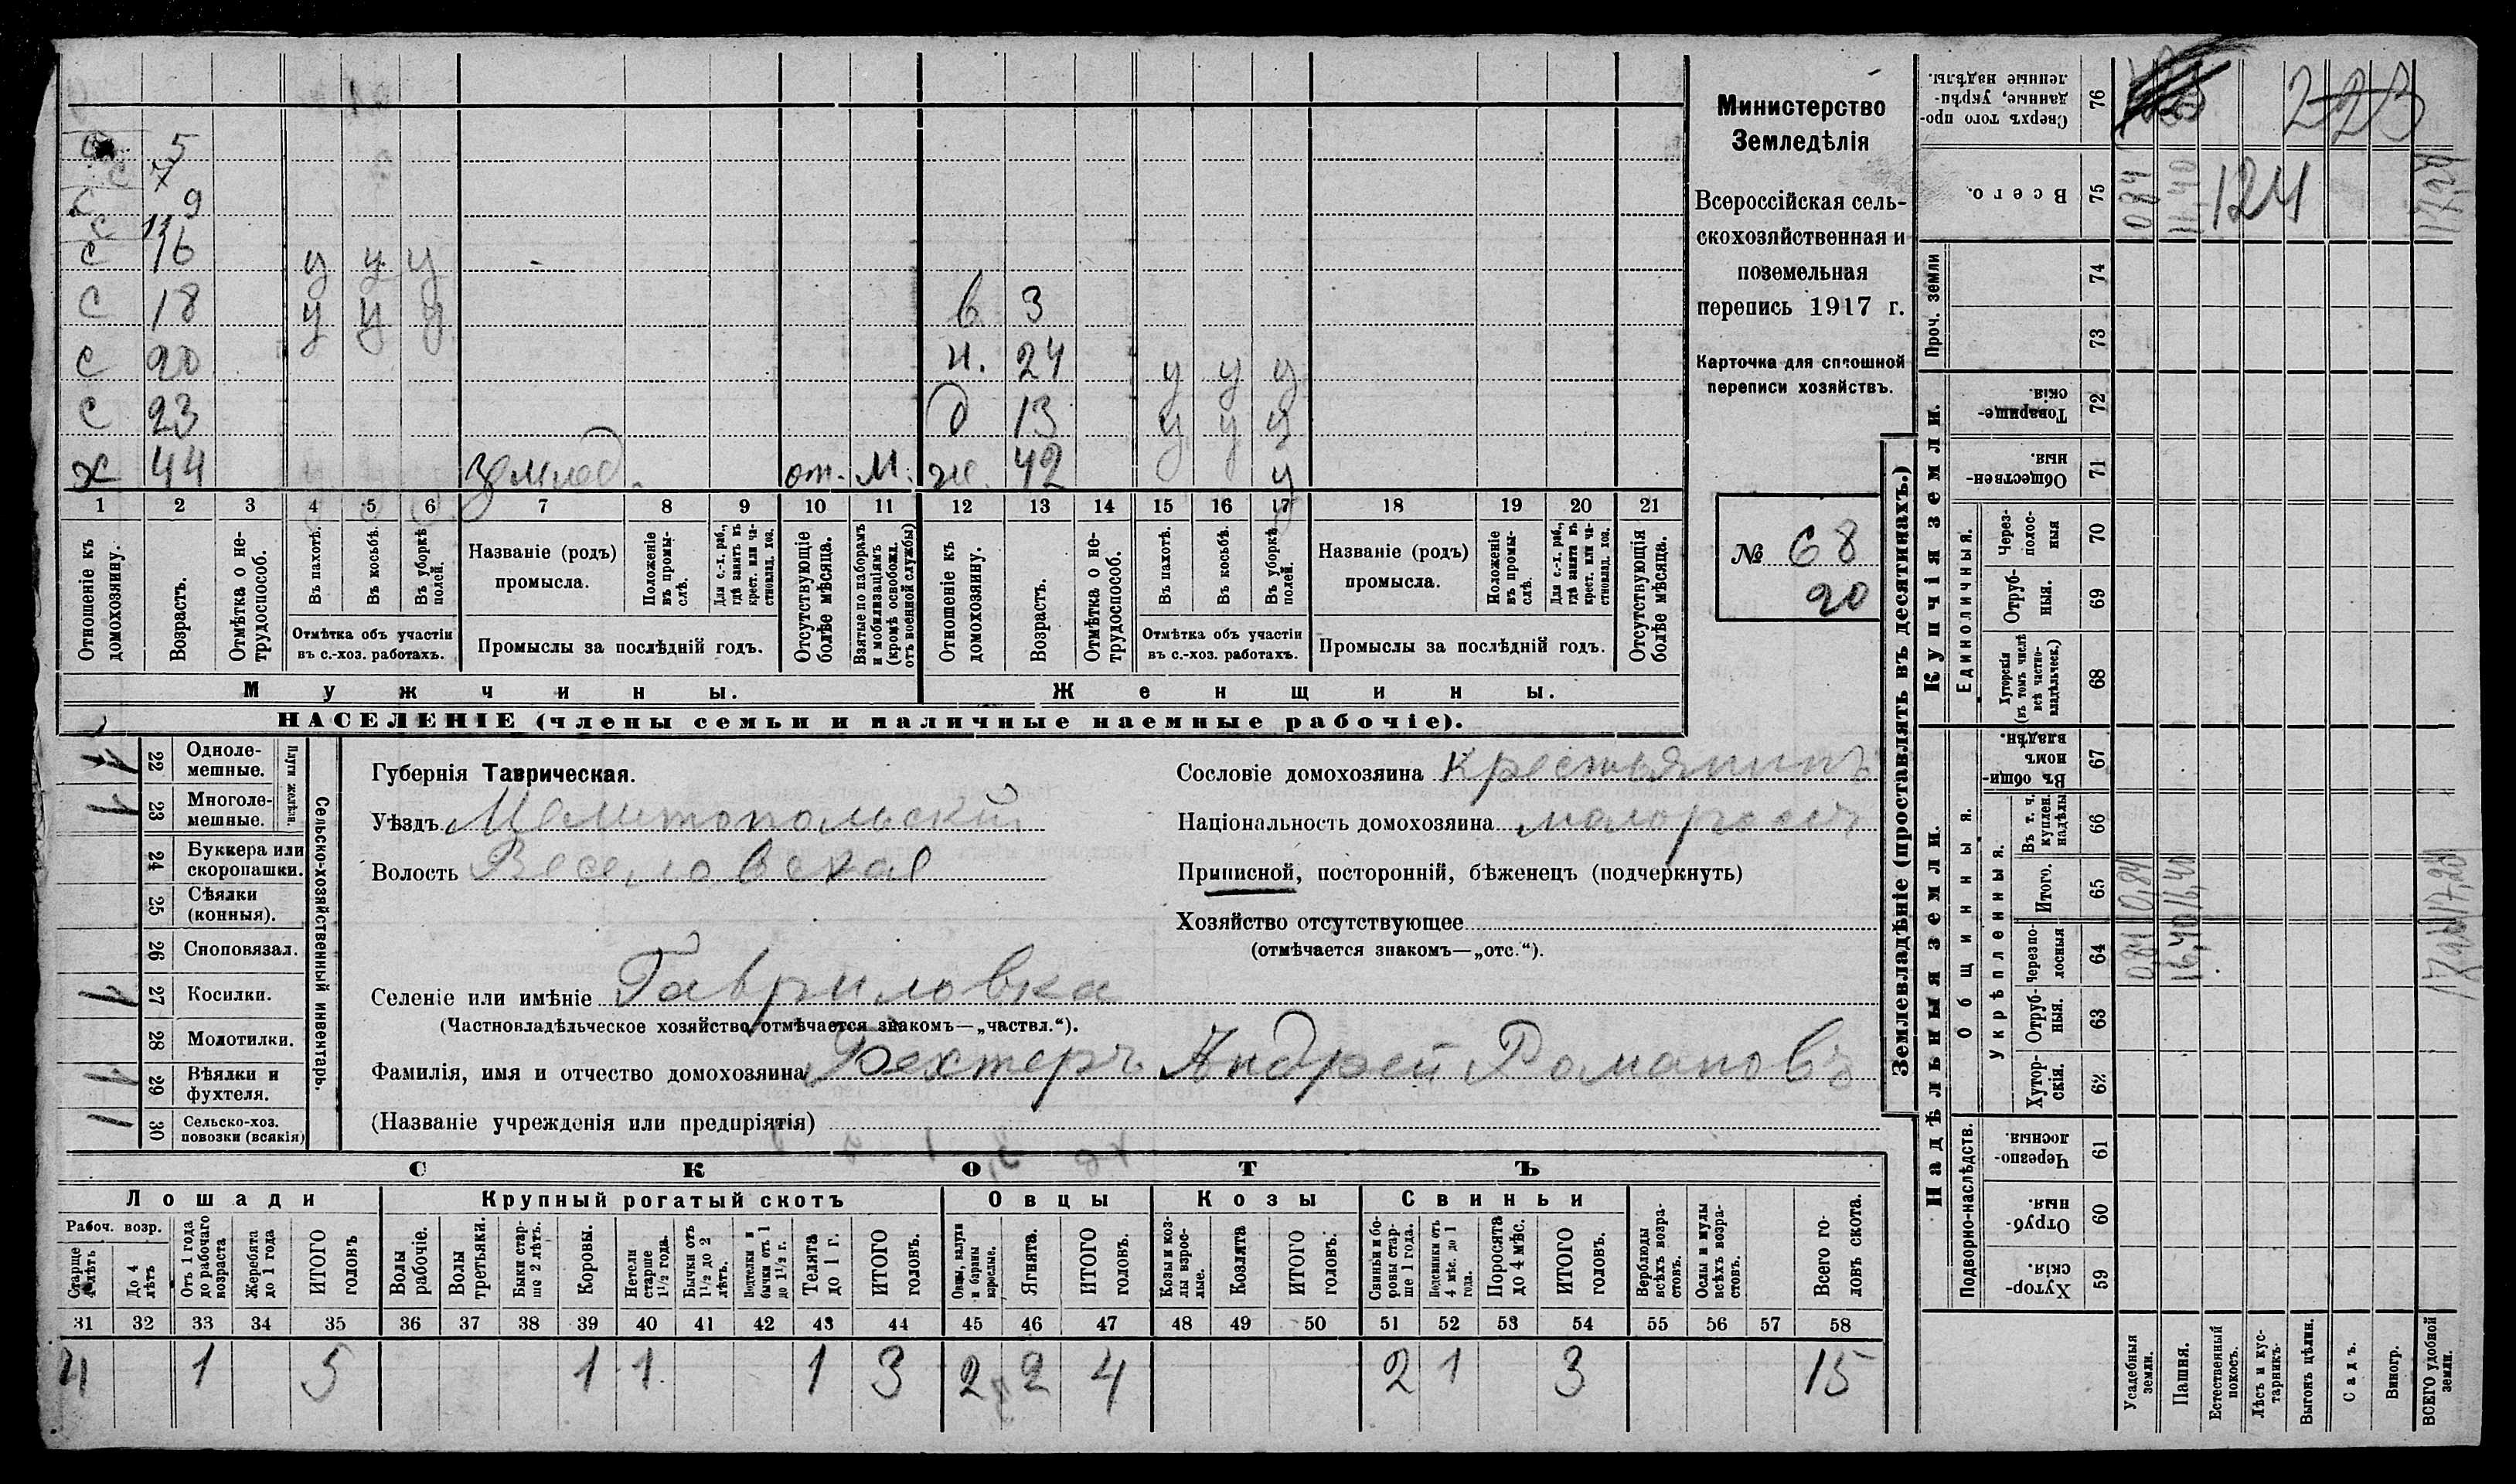 Министерство
Земледѣлія
Всероссійская сель-
скохозяйственная и
поземельная
перепись 1917 г.
Карточка для сплошной
переписи хозяйствъ.
№ 68
20
5
с 7
с 9
с 11
с 16 у у у
с 18 у у у в 3
с 20 н. 24 у у у
с 23 д 13 у у у
х 44 Землед. от. М. же. 42 у
1 2 3 4 5 6 7 8 9 10 11 12 13 14 15 16 17 18 19 20 21
Отношеніе къ домохозяину.
Возрастъ.
Отмѣтка о не-трудоспособ.
Въ пахотѣ.
Въ косьбѣ.
Въ уборкѣ полей.
Отмѣтка объ участіи
въ с.-хоз. работахъ.
Названіе (родъ)
промысла.
Положеніе въ промы-слѣ.
Для с.-х. раб., гдѣ занятъ въ крест. или ча-стновлад. хоз.
Промыслы за послѣдній годъ.
Отсутствующіе болѣе мѣсяца.
Взятые по наборамъ и мобилизаціямъ (кромѣ освобожд. отъ военной службы)
Отношеніе къ домохозяину.
Возрастъ.
Отмѣтка о не-трудоспособ.
Въ пахотѣ.
Въ косьбѣ.
Въ уборкѣ полей.
Отмѣтка объ участіи
въ с.-хоз. работахъ.
Названіе (родъ)
промысла.
Положеніе въ промы-слѣ.
Для с.-х. раб., гдѣ занята въ крест. или ча-стновлад. хоз.
Промыслы за послѣдній годъ.
Отсутствующія болѣе мѣсяца.
Мужчины. Женщины.
НАСЕЛЕНІЕ (члены семьи и наличные наемные рабочіе).
Сельско-хозяйственный инвентарь.
Плуги желѣзн.
22 Одноле-
мешные.
1 23 Многоле-
мешные.
24 Буккера или
скоропашки.
25 Сѣялки
(конныя).
26 Сноповязал.
1 27 Косилки.
28 Молотилки.
1 29 Вѣялки и
фухтеля.
1 30 Сельско-хоз.
повозки (всякія)
Губернія Таврическая.
Уѣздъ Мелитопольскій
Волость Веселовская
Сословіе домохозяина крестьянинъ
Національность домохозяина малороссъ
Приписной, посторонній, бѣженецъ (подчеркнуть)
Хозяйство отсутствующее
(отмѣчается знакомъ—„отс.“).
Селеніе или имѣніе Гавриловка
(Частновладѣльческое хозяйство отмѣчается знакомъ—„частвл.“).
Фамилія, имя и отчество домохозяина Бехтеръ Андрей Романовъ
(Названіе учрежденія или предпріятія)
СКОТЪ
Лошади Крупный рогатый скотъ Овцы Козы Свиньи
Рабоч. возр.
Старше 4 лѣтъ
До 4 лѣтъ
Отъ 1 года до рабочаго возраста
Жеребята до 1 года
ИТОГО головъ
Волы рабочіе.
Волы третьяки.
Быки стар-ше 2 лѣтъ.
Коровы.
Нетели старше 1½ года.
Бычки отъ 1½ до 2 лѣтъ.
Подтелки и бычки отъ 1 до 1½ г.
Телята до 1 г.
ИТОГО головъ.
Овцы, валухи и бараны взрослые.
Ягнята.
ИТОГО головъ.
Козы и коз-лы взрос-лые.
Козлята
ИТОГО головъ.
Свиньи и бо-ровы стар-ше 1 года.
Подсвинки отъ 4 мѣс. до 1 года.
Поросята до 4 мѣс.
ИТОГО головъ.
Верблюды всѣхъ возра-стовъ.
Ослы и мулы всѣхъ возра-стовъ.
Всего го-ловъ скота.
31 32 33 34 35 36 37 38 39 40 41 42 43 44 45 46 47 48 49 50 51 52 53 54 55 56 57 58
4 1 5 1 1 1 3 2 2 4 2 1 3 15
Землевладѣніе (проставлять въ десятинахъ.)
Надѣльныя земли. Купчія земли.
Проч. земли
Подворно-наслѣдств.
Общинныя.
Укрѣпленныя.
Единоличныя.
76 Сверхъ того про-данные, укрѣп-ленные надѣлы. 223
75 Всего. 0,84 16,40 124 17,24
74
73
72 Товарище-скія.
71 Обществен-ныя.
70 Через-полос-ныя
69 Отруб-ныя.
68 Хуторскія (въ томъ числѣ всѣ частно-владѣльческ.)
67 Въ общи-номъ владѣн.
66 Въ т. ч. куплен. надѣлы
65 Итого. 0,84 16,40 17,24
64 Черезпо-лосныя 0,84 16,40 17,24
63 Отруб-ныя.
62 Хутор-скія.
61 Черезпо-лосныя.
60 Отруб-ныя.
59 Хутор-скія.
Усадебныя земли.
Пашня.
Естественный покосъ.
Лѣсъ и кус-тарникъ.
Выгонъ цѣлин.
Садъ.
Виногр.
ВСЕГО удобной земли.